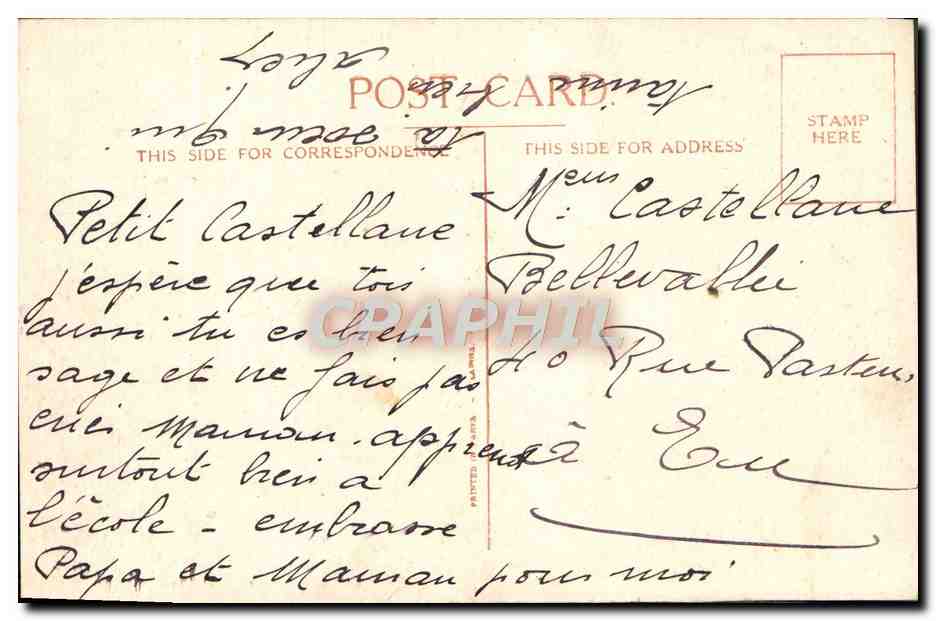 POST CARD
THIS SIDE FOR CORRESPONDENCE
THIS SIDE FOR ADDRESS
STAMP
HERE
Petit Castellane
j'espère que tois
aussi tu es bien
sage et ne fais pas
crier Maman. apprend
surtout bien a
l'école - embrasse
Papa et Maman pour moi
ta soeur qui
t'aime bien
Meur Castellane
40 Rue Pasteur
à Eu
PRINTED IN
CPAPHIL